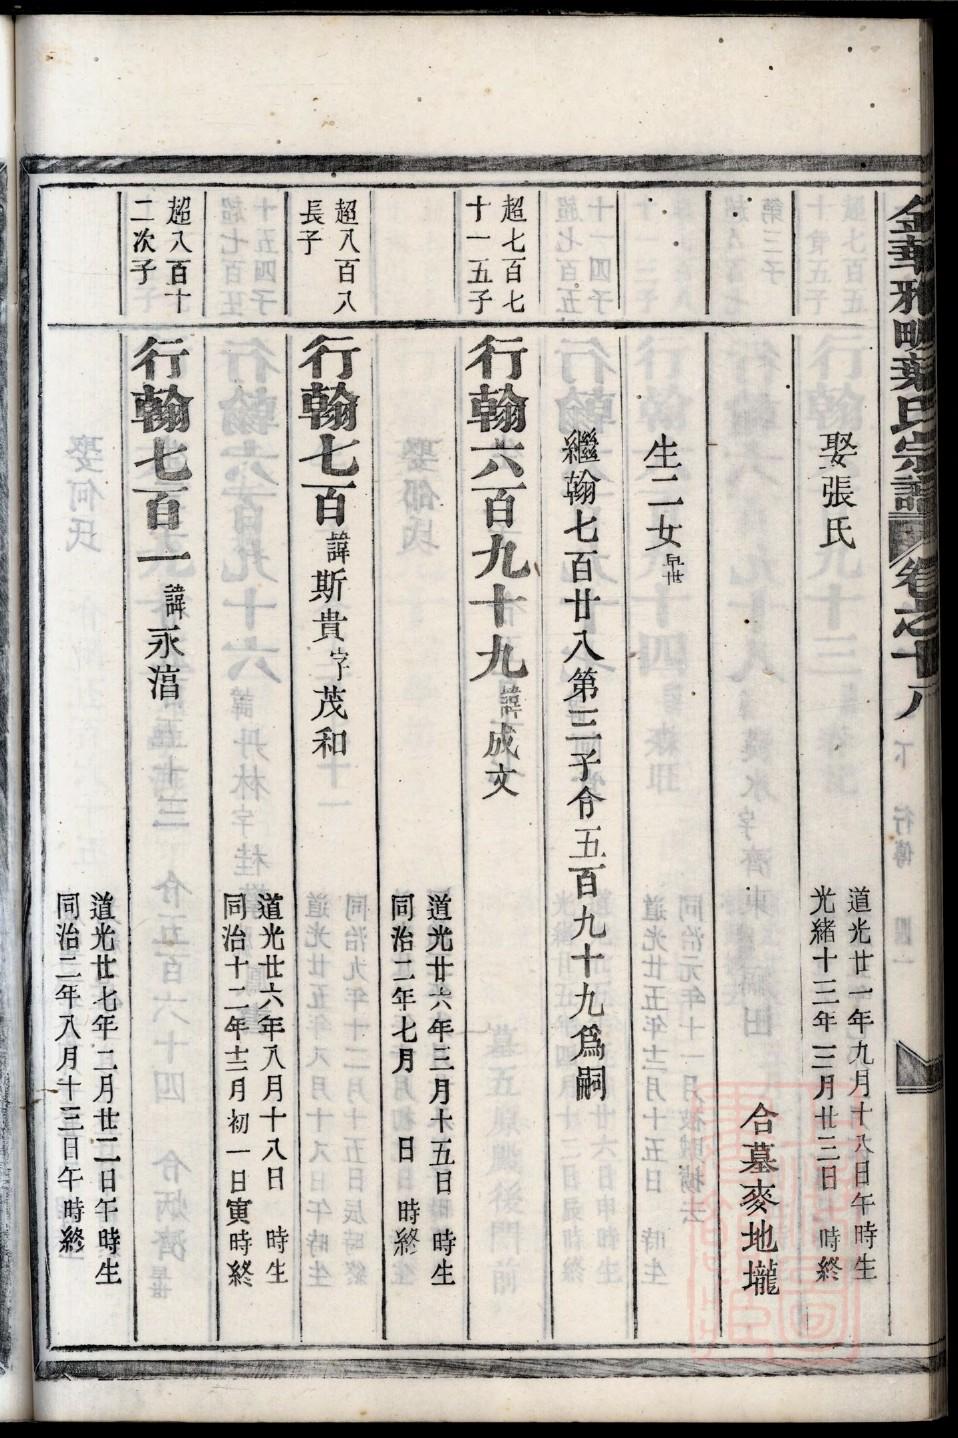 金華雅畈葉氏宗譜 卷之十八 下 行傳
娶張氏
道光廿一年九月十八日午時生
光緒十三年三月廿三日 時終
合墓麥地壠
生二女早世
繼翰七百廿八第三子令五百九十九爲嗣
超七百七
十一五子
行翰六百九十九諱成文
道光廿六年三月十五日 時生
同治二年七月 日 時終
超八百八
長子
行翰七百諱斯貴字茂和
道光廿六年八月十八日 時生
同治十二年十二月初一日寅時終
超八百十
二次子
行翰七百一諱永湆
道光廿七年二月廿二日午時生
同治二年八月十三日午時終